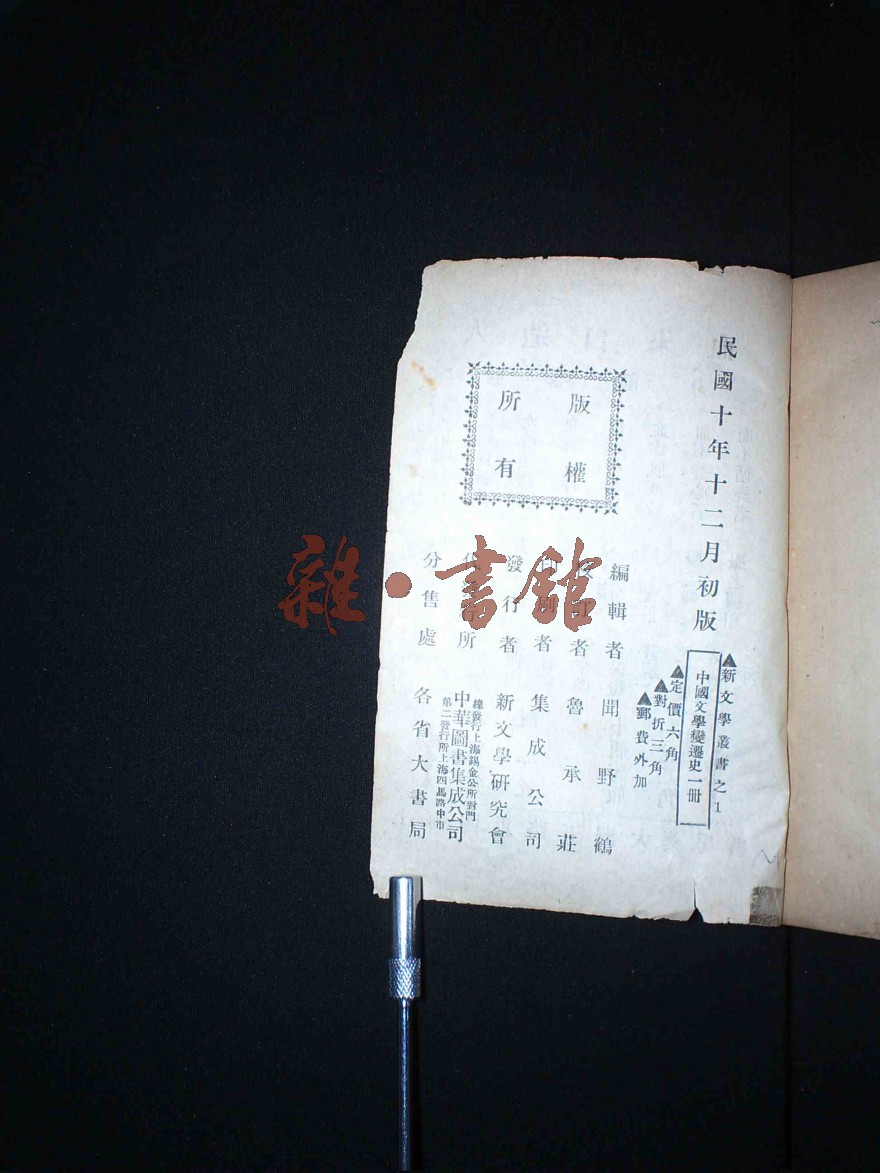 民國十年十二月初版
▲新文學叢書之1
中國文學變遷史一冊
▲定價六角
▲對折三角
▲郵費外加
版權
所有
編輯者 聞野鶴
訂者 魯承莊
印刷者 集成公司
發行者 新文學研究會
所 中華圖書集成公司
總發行上海錫金公所對門
第二發行所上海四馬路中市
分售處 各省大書局
雜·書館